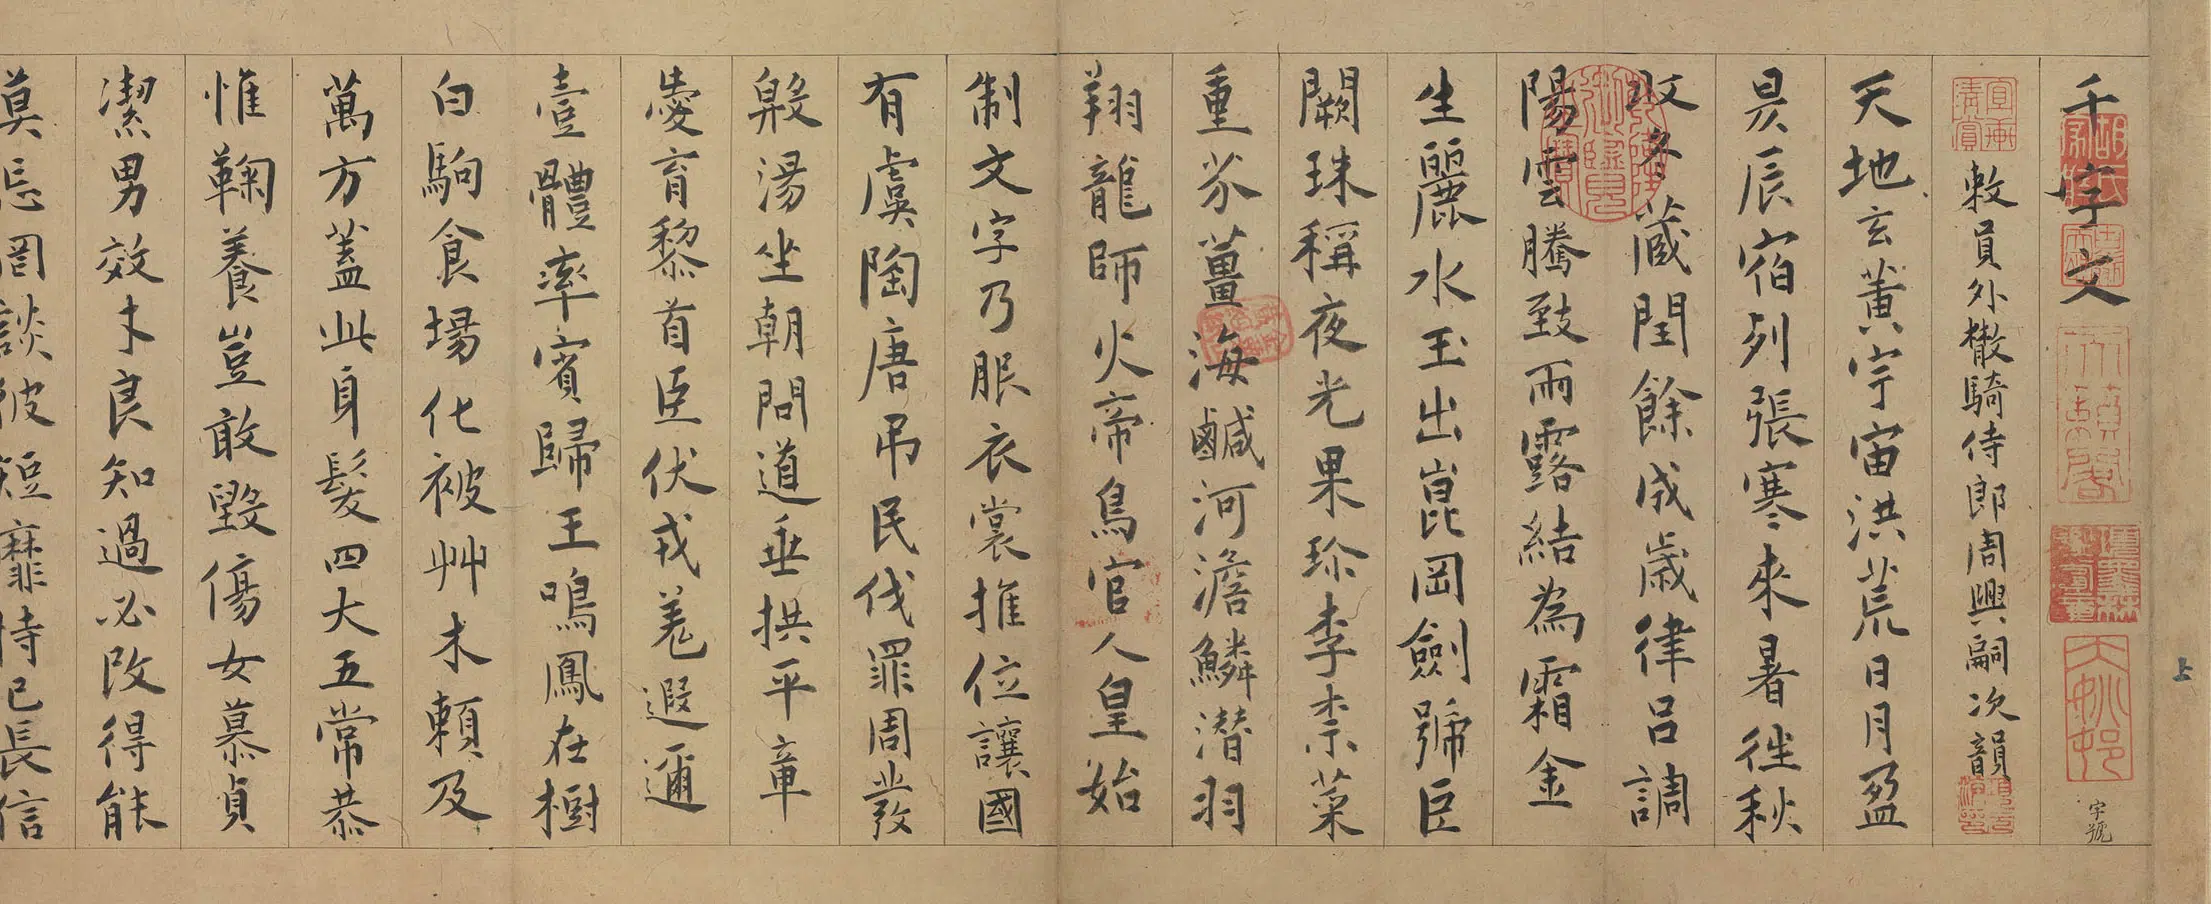 上
千字文
字號
敕員外散騎侍郎周興嗣次韻
天地玄黃宇宙洪荒日月盈
昃辰宿列張寒來暑往秋
收冬藏閏餘成歲律呂調
陽雲騰致雨露結為霜金
生麗水玉出崑岡劍號巨
闕珠稱夜光果珍李柰菜
重芥薑海鹹河澹鱗潛羽
翔龍師火帝鳥官人皇始
制文字乃服衣裳推位讓國
有虞陶唐吊民伐罪周發
殷湯坐朝問道垂拱平章
愛育黎首臣伏戎羌遐邇
壹體率賓歸王鳴鳳在樹
白駒食場化被艸木賴及
萬方蓋此身髮四大五常恭
惟鞠養豈敢毀傷女慕貞
潔男效才良知過必改得能
莫忘罔談彼短靡恃己長信